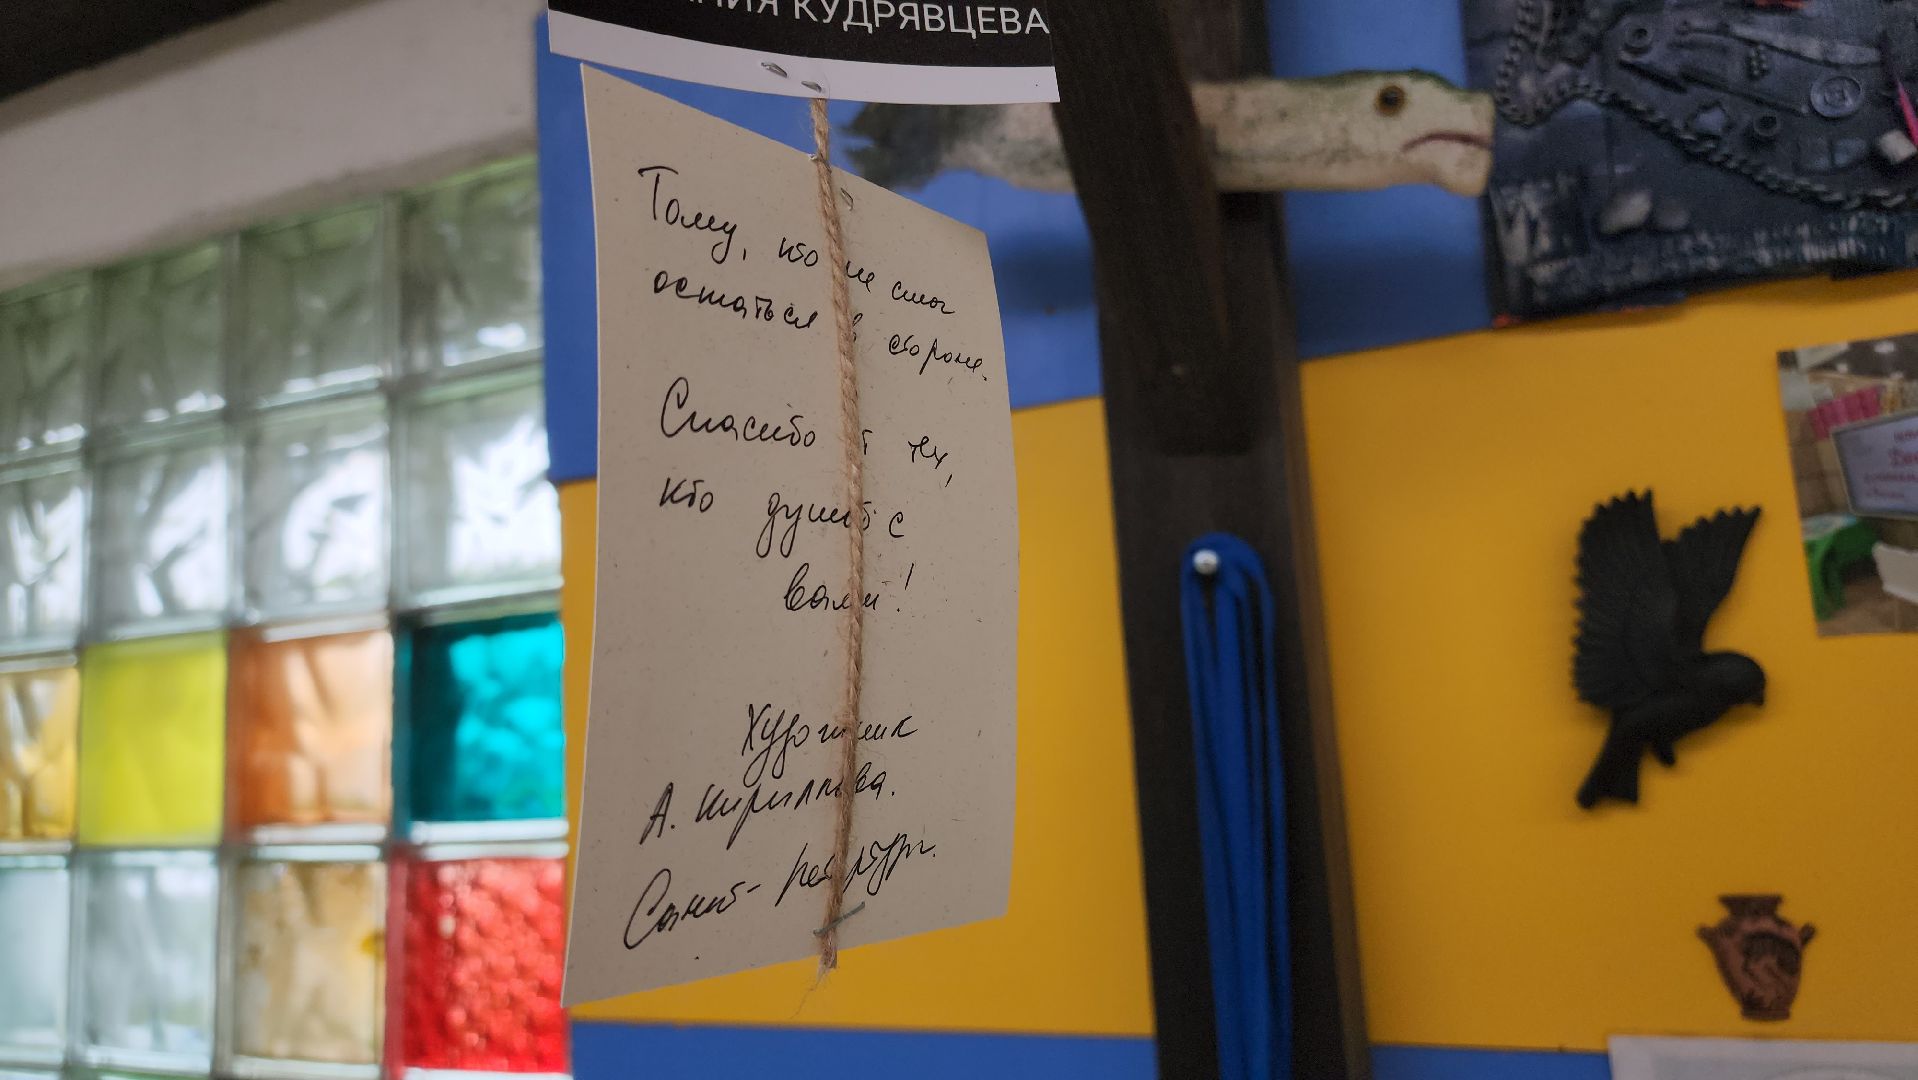 КУДРЯВЦЕВА
Тому, кто не смог
остаться в стороне.
Спасибо от тех,
кто душой с
вами!
Художник
А. Кириллова.
Санкт-Петербург.